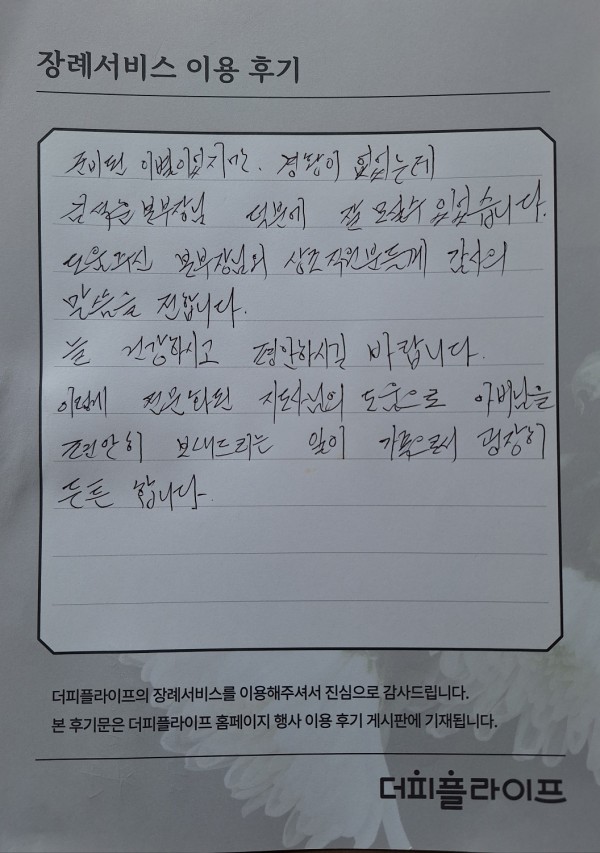 장례서비스 이용 후기
준비된 이별이었지만. 경황이 없었는데
본부장님 덕분에 잘 모실수 있었습니다.
도와주신 본부장님외 상조직원분들께 감사의
말씀을 전합니다.
늘 건강하시고 평안하시길 바랍니다.
이렇게 전문화된 지도사님의 도움으로 아버님을
편안히 보내드리는 일이 가족으로서 굉장히
든든 합니다.
더피플라이프의 장례서비스를 이용해주셔서 진심으로 감사드립니다.
본 후기문은 더피플라이프 홈페이지 행사 이용 후기 게시판에 기재됩니다.
더피플라이프